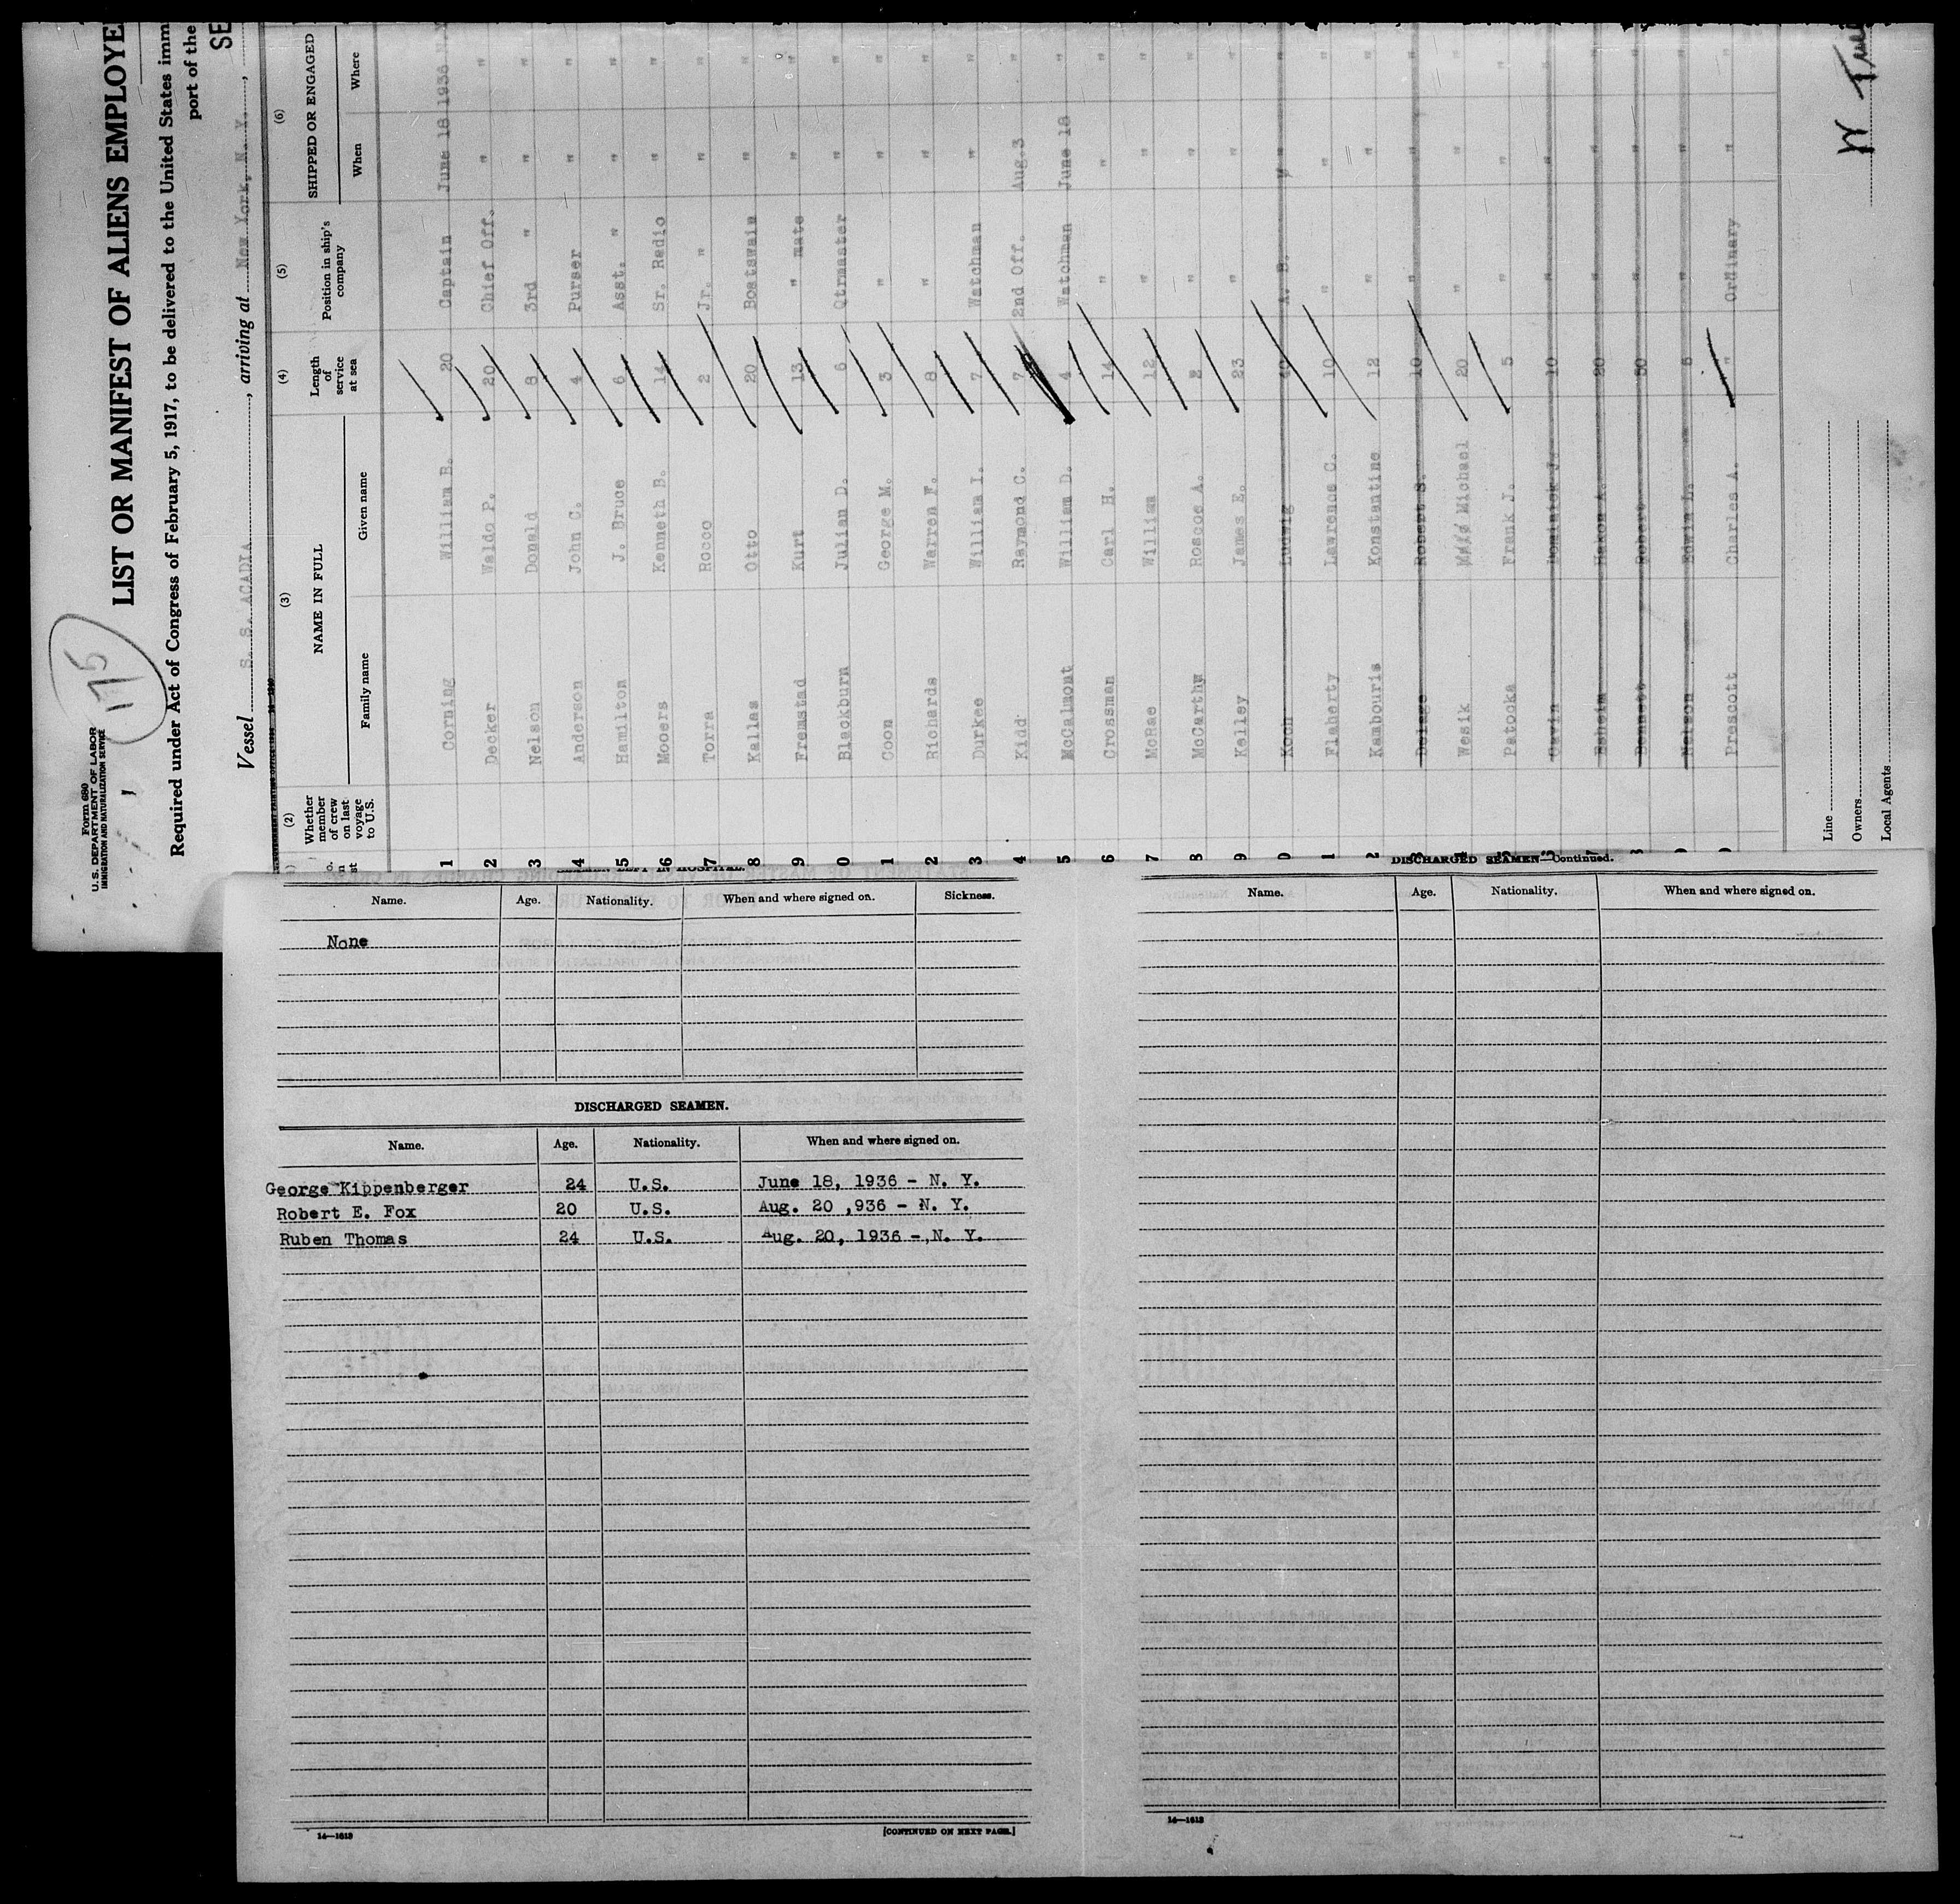 Form 680
U.S. DEPARTMENT OF LABOR
IMMIGRATION AND NATURALIZATION SERVICE
175
LIST OR MANIFEST OF ALIENS EMPLOYE
Required under Act of Congress of February 5, 1917, to be delivered to the United States imm
port of the
SE
Vessel S. S. ACADIA, arriving at New York, N. Y.,
(2) (3) (4) (5) (6)
Whether member of crew on last voyage to U.S. NAME IN FULL Length of service at sea Position in ship's company SHIPPED OR ENGAGED
Family name Given name When Where
1 Corning William B. 20 Captain June 18 1936 N.Y
2 Decker Waldo P. 20 Chief Off. " "
3 Nelson Donald 8 3rd " " "
4 Anderson John C. 4 Purser " "
5 Hamilton J. Bruce 6 Asst. " " "
6 Mooers Kenneth B. 14 Sr. Radio " "
7 Torra Rocco 2 Jr. " " "
8 Kallas Otto 20 Boatswain " "
9 Fremstad Kurt 13 " mate " "
0 Blackburn Julian D. 6 Qtrmaster " "
1 Coon George M. 3 " " "
2 Richards Warren F. 8 " " "
3 Durkee William I. 7 Watchman " "
4 Kidd Raymond C. 7 2nd Off. Aug.3 "
5 McCalmont William D. 4 Watchman June 18 "
6 Crossman Carl H. 14 " " "
7 McRae William 12 " " "
8 McCarthy Roscoe A. 2 " " "
9 Kelley James E. 23 " " "
0 Koch Ludwig 40 A. B. " "
1 Flaherty Lawrence C. 10 " " "
2 Kambouris Konstantine 12 " " "
3 Delage Robert S. 10 " " "
Wesik Michael 20 " " "
Patocka Frank J. 5 " " "
Gavin Dominick J. 10 " " "
Esheim Hakon A. 20 " " "
Bennett Robert 30 " " "
Nelson Edwin L. 5 " " "
Prescott Charles A. " Ordinary " "
Line
Owners
Local Agents
SEAMEN LEFT IN HOSPITAL.
Name. Age. Nationality. When and where signed on. Sickness.
None
DISCHARGED SEAMEN.
Name. Age. Nationality. When and where signed on.
George Kippenberger 24 U.S. June 18, 1936 - N. Y.
Robert E. Fox 20 U.S. Aug. 20 ,936 - N. Y.
Ruben Thomas 24 U.S. Aug. 20, 1936 -,N. Y.
14—1613
[CONTINUED ON NEXT PAGE.]
DISCHARGED SEAMEN—Continued.
Name. Age. Nationality. When and where signed on.
14—1613